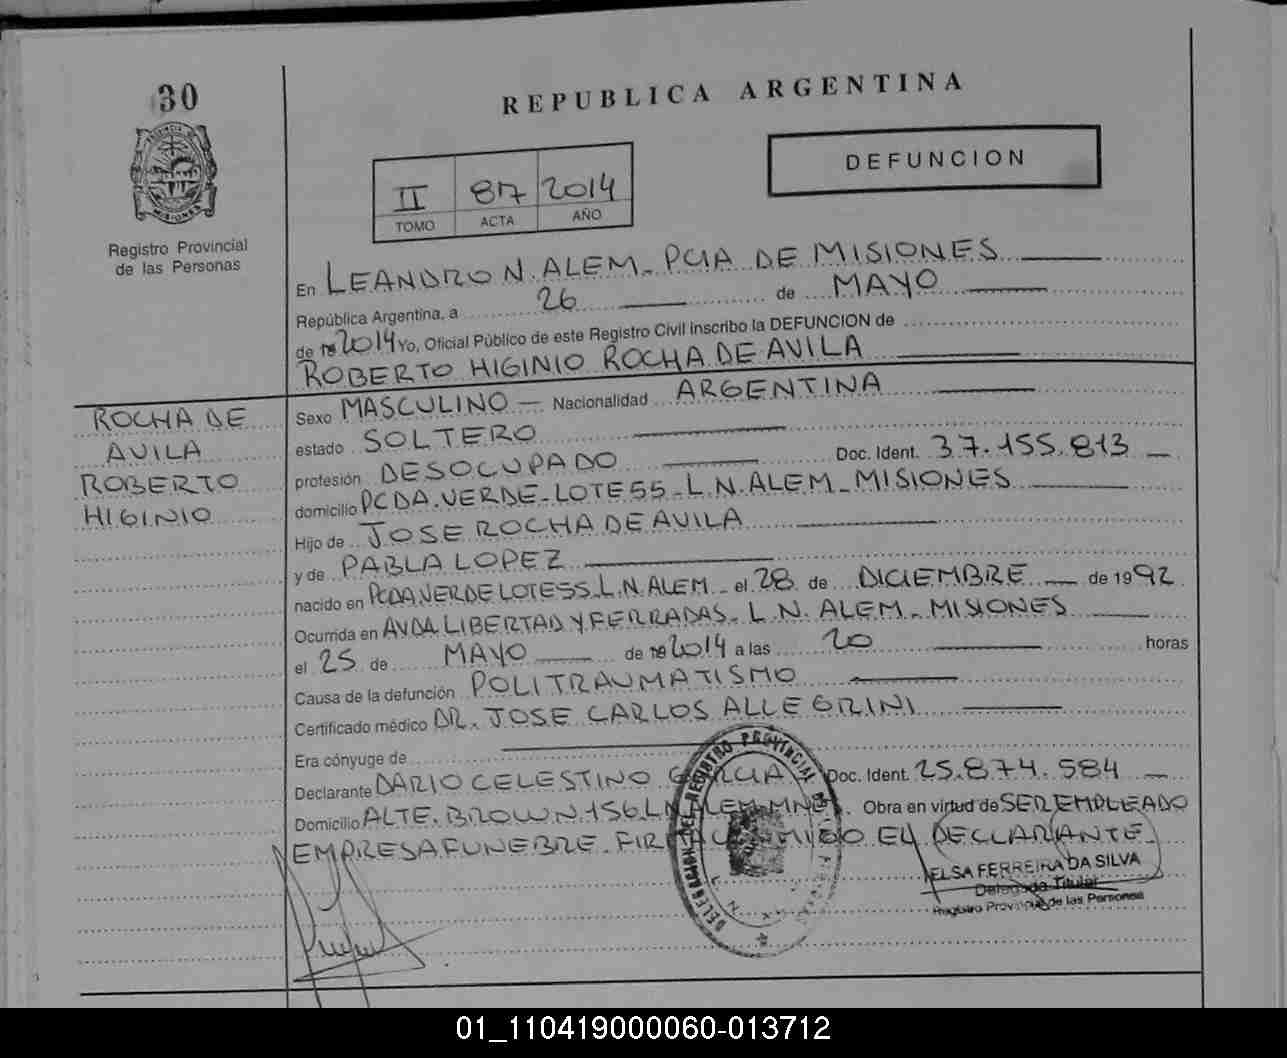 30
REPUBLICA ARGENTINA
DEFUNCION
II 87 2014
TOMO ACTA AÑO
Registro Provincial
de las Personas
En LEANDRO N. ALEM_ PCIA DE MISIONES
República Argentina, a 26 de MAYO
de 19 2014 Yo, Oficial Público de este Registro Civil inscribo la DEFUNCION de
ROBERTO HIGINIO ROCHA DE AVILA
ROCHA DE
AVILA
ROBERTO
HIGINIO
Sexo MASCULINO — Nacionalidad ARGENTINA
estado SOLTERO
profesión DESOCUPADO Doc. Ident. 37.155.813 —
domicilio PCDA.VERDE_LOTE 55_L.N.ALEM_MISIONES
Hijo de JOSE ROCHA DE AVILA
y de PABLA LOPEZ
nacido en PCDA.VERDE LOTE 55_L.N.ALEM_ el 28 de DICIEMBRE — de 1992
Ocurrida en AVDA LIBERTAD Y FERRADAS_ L.N. ALEM_ MISIONES
el 25 de MAYO de 19 2014 a las 20 horas
Causa de la defunción POLITRAUMATISMO
Certificado médico DR. JOSE CARLOS ALLEGRINI
Era cónyuge de
Declarante DARIO CELESTINO GARCIA Doc. Ident. 25.874.584 —
Domicilio ALTE. BROWN.156 L.N.ALEM.MNES. Obra en virtud de SER EMPLEADO
EMPRESA FUNEBRE_ EL DECLARANTE_
DELEGACION DEL REGISTRO PROVINCIAL
ELSA FERREIRA DA SILVA
Delegada Titular
Registro Provincial de las Personas
01_110419000060-013712